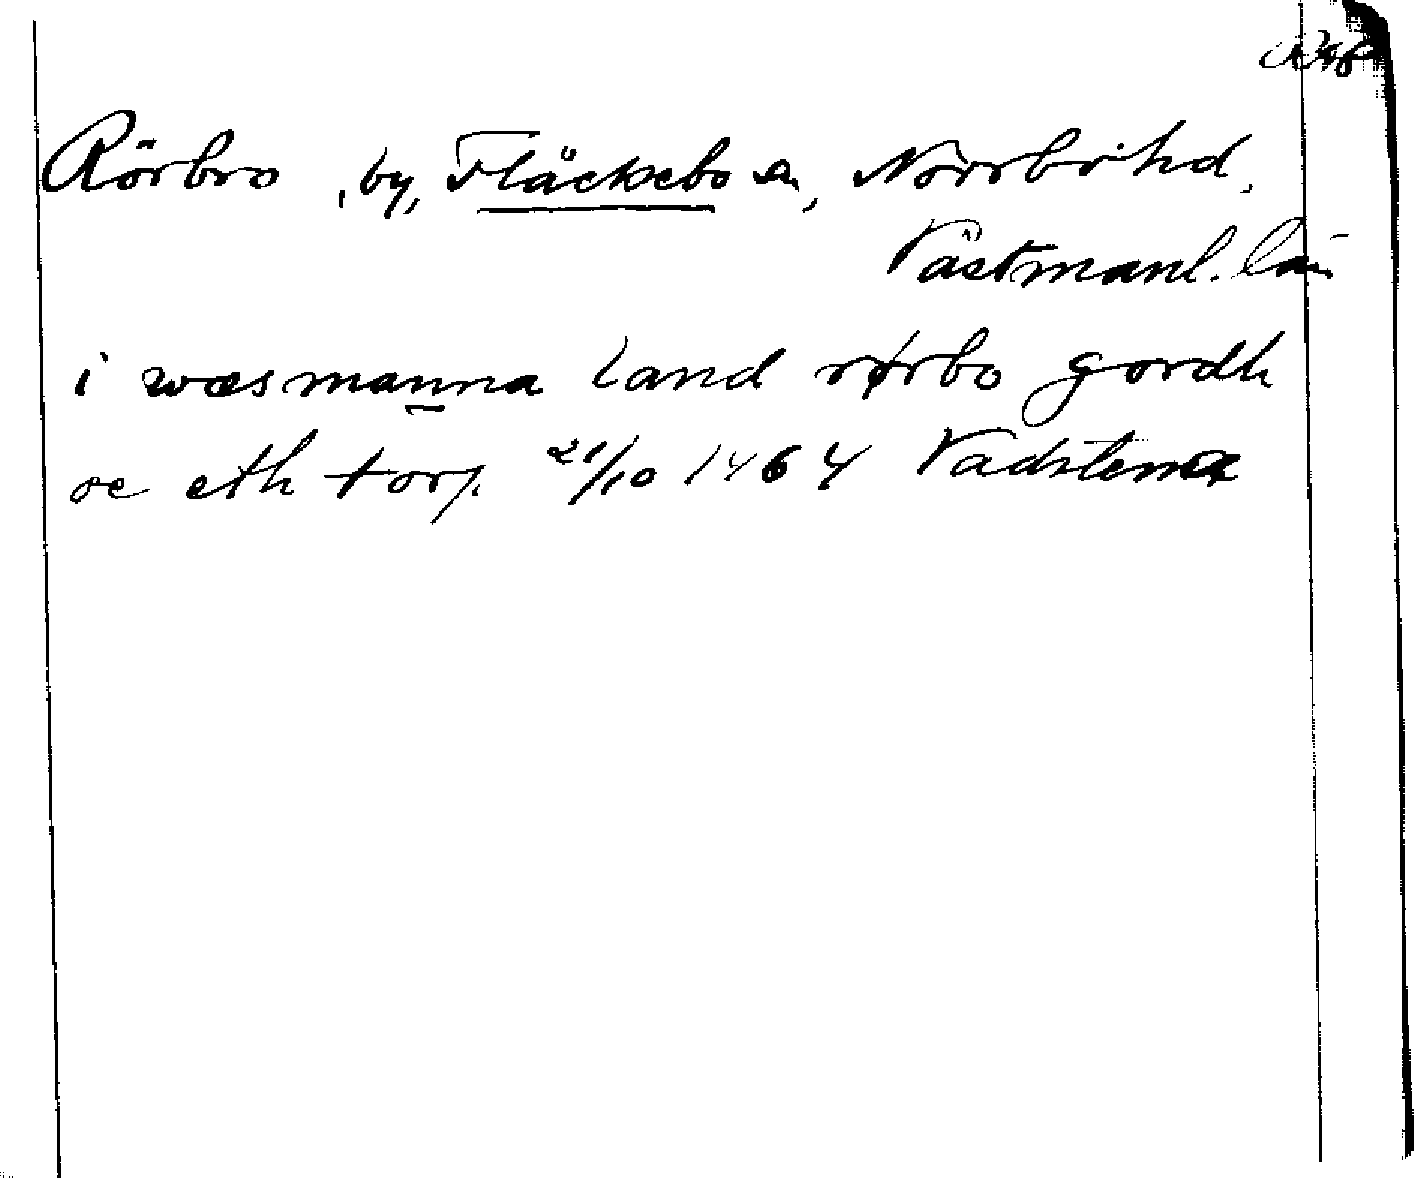 Rörbro, by, Fläckebo sn, Norrbo hd,
Västmanl. län
i wæsmanna land rørbo gordh
oc eth torp 21/10 1464 Vadstena